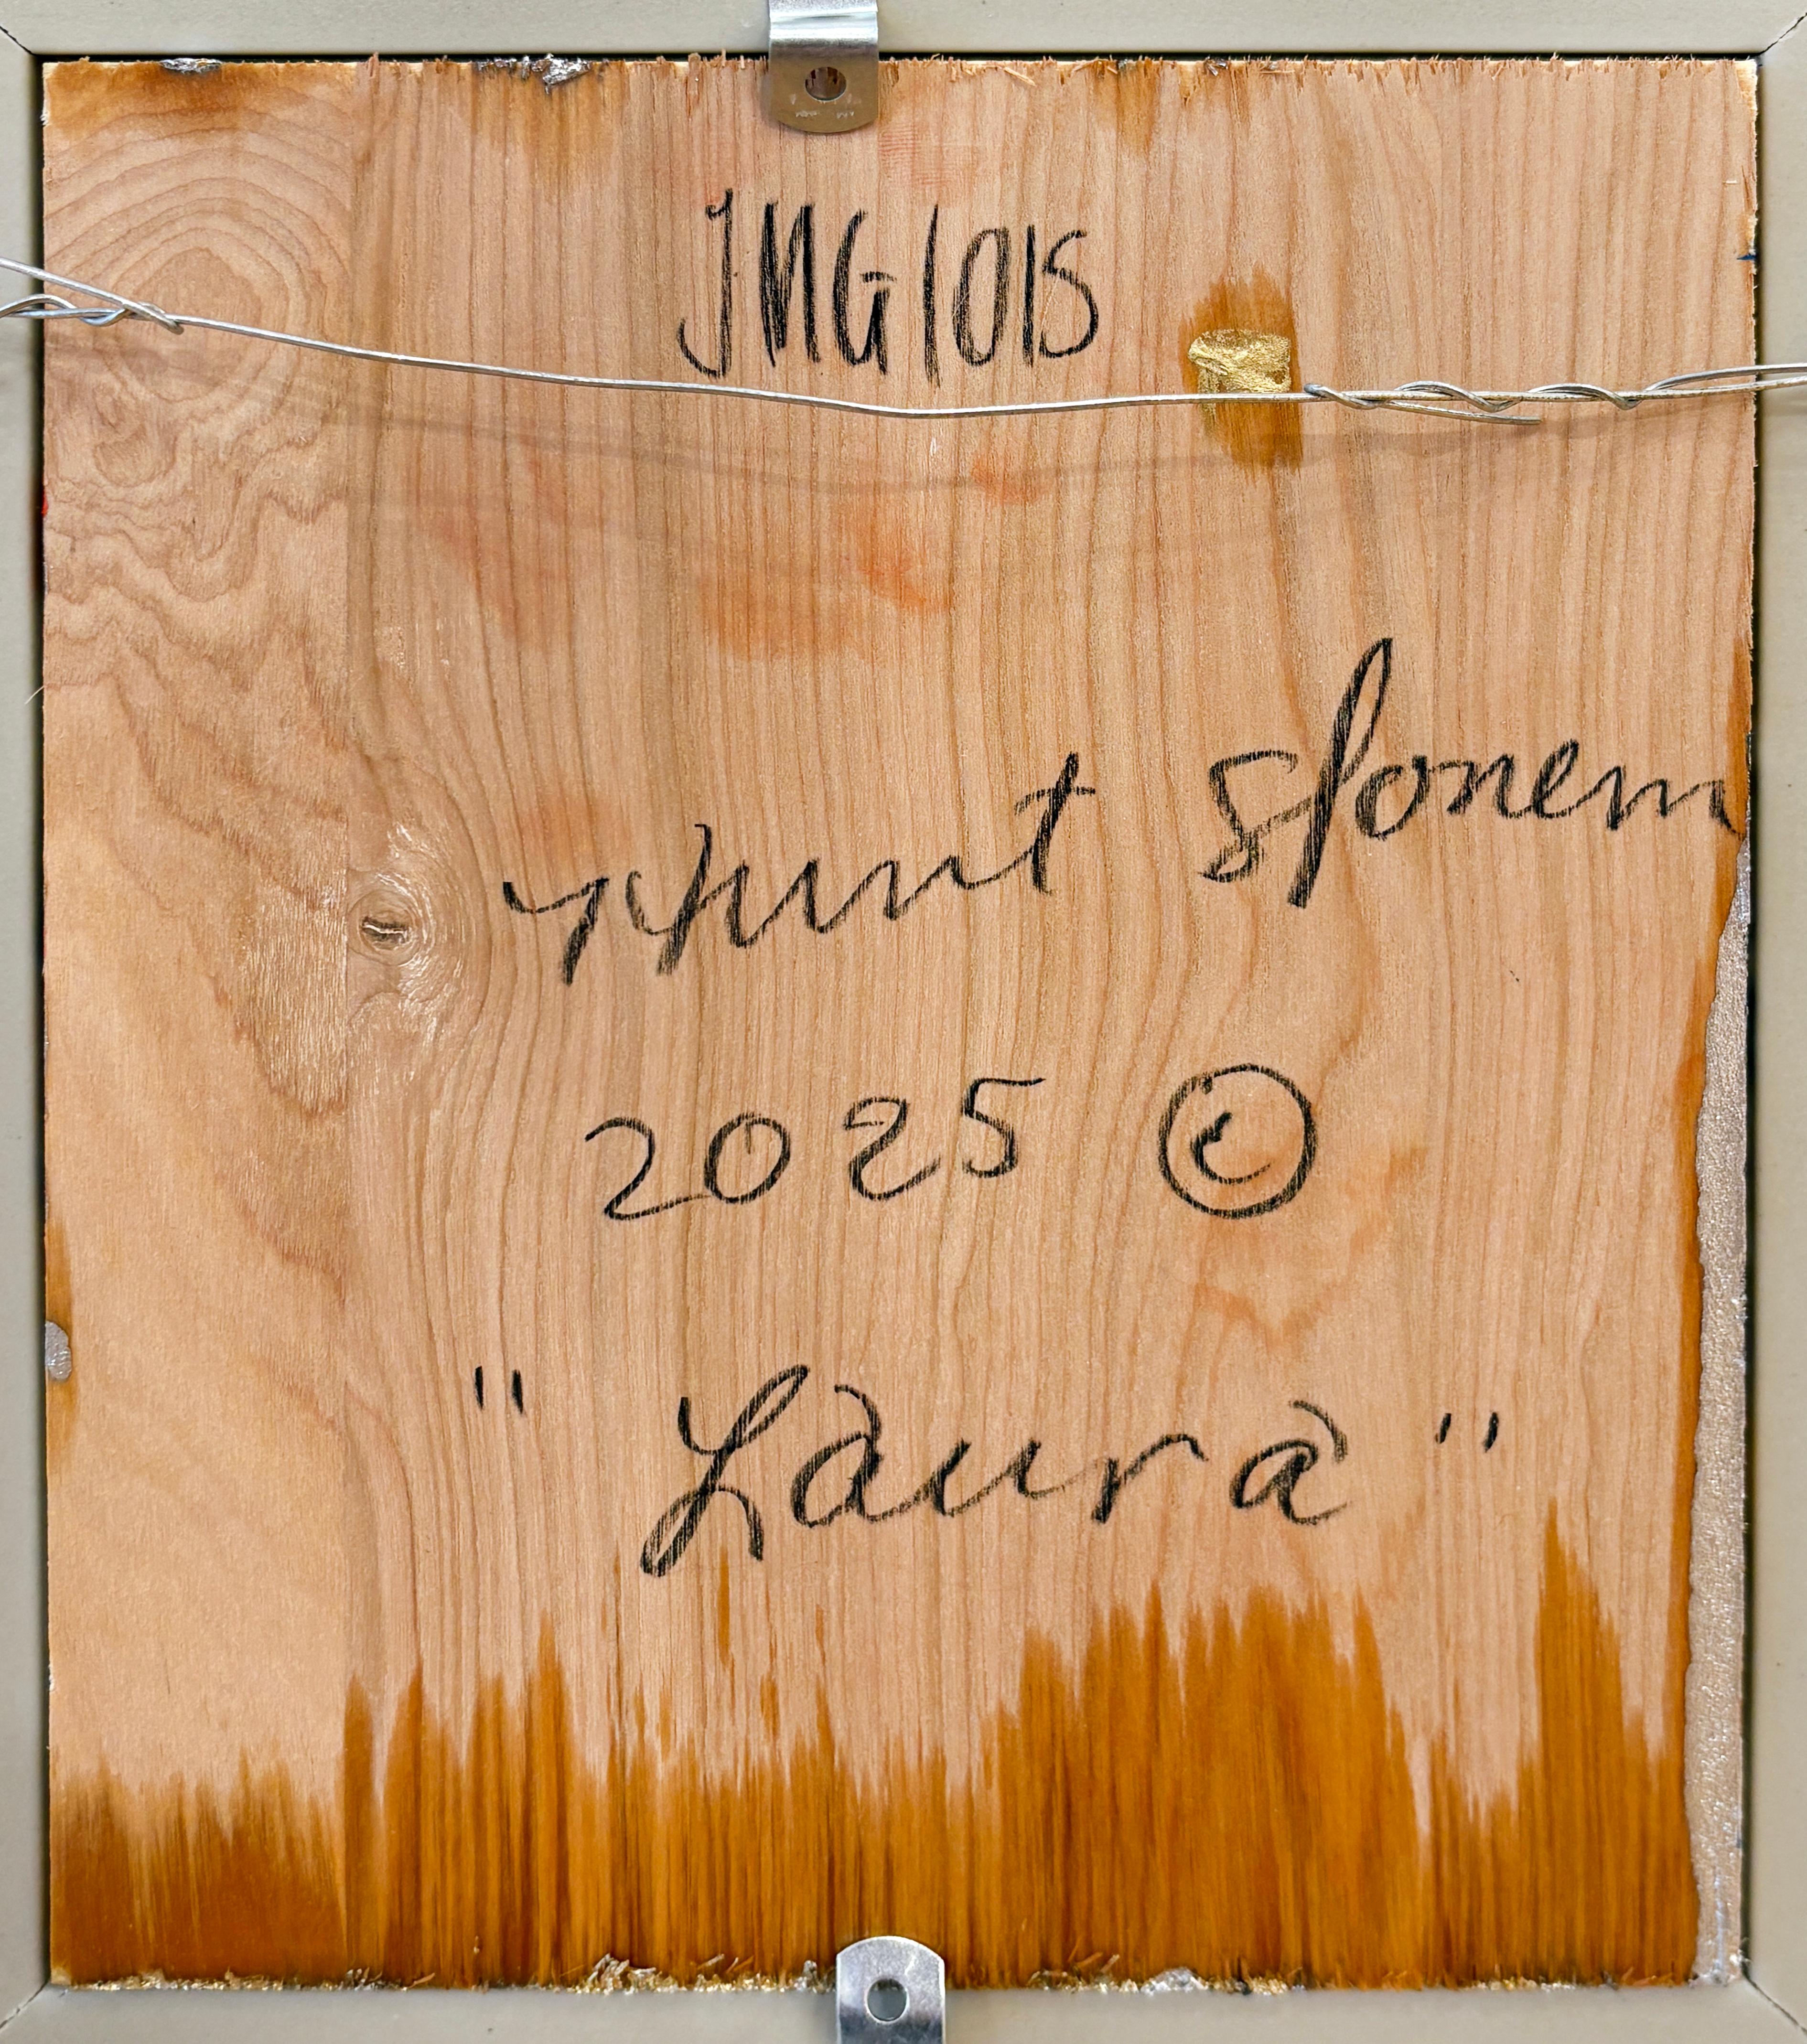 JMG1015
Hunt Slonem
2025 ©
"Laura"